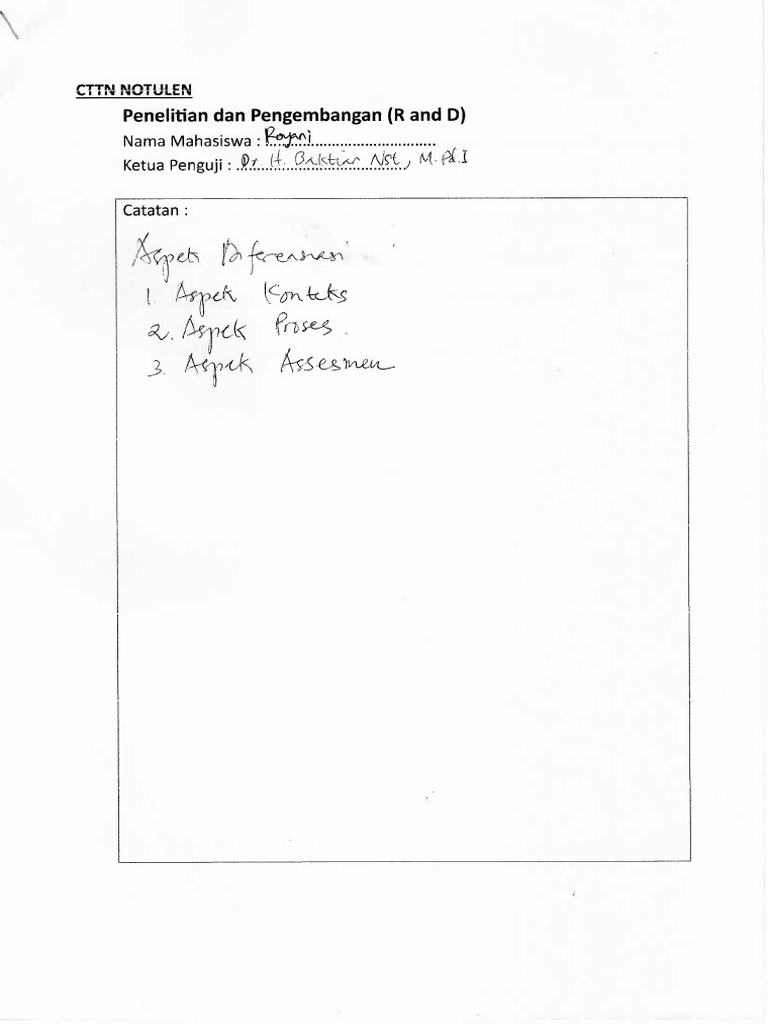 CTTN NOTULEN
Penelitian dan Pengembangan (R and D)
Nama Mahasiswa : Royani
Ketua Penguji : Dr. H. Baktiar Nst, M.Pd.I
Catatan :
Aspek Diferensiasi
1. Aspek Konteks
2. Aspek Proses.
3. Aspek Assesmen